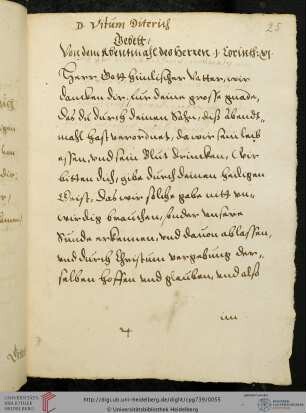 D. Vitum Diterich
25
Gebett/
Von dem Abentmahl des Herren 1 Corinth: XI.
Herr Gott himlischer Vatter, wir
dancken dir, für deine grosse gnade,
das du durch deinen Sohn, diß Abendt-
mahl hast verordnet, da wir sein leib
essen, vnd sein Blut drincken, Wir
bitten dich, gibe durch deinen heiligen
Geist, das wir solche gabe nitt vn-
wirdig brauchen, sonder vnsere
Sünde erkennen, vnd dauon ablassen,
vnd durch Christum vergebung der-
selben hoffen vnd glauben, vnd also
im
UNIVERSITÄTS-
BIBLIOTHEK
HEIDELBERG
http://digi.ub.uni-heidelberg.de/diglit/cpg739/0055
© Universitätsbibliothek Heidelberg